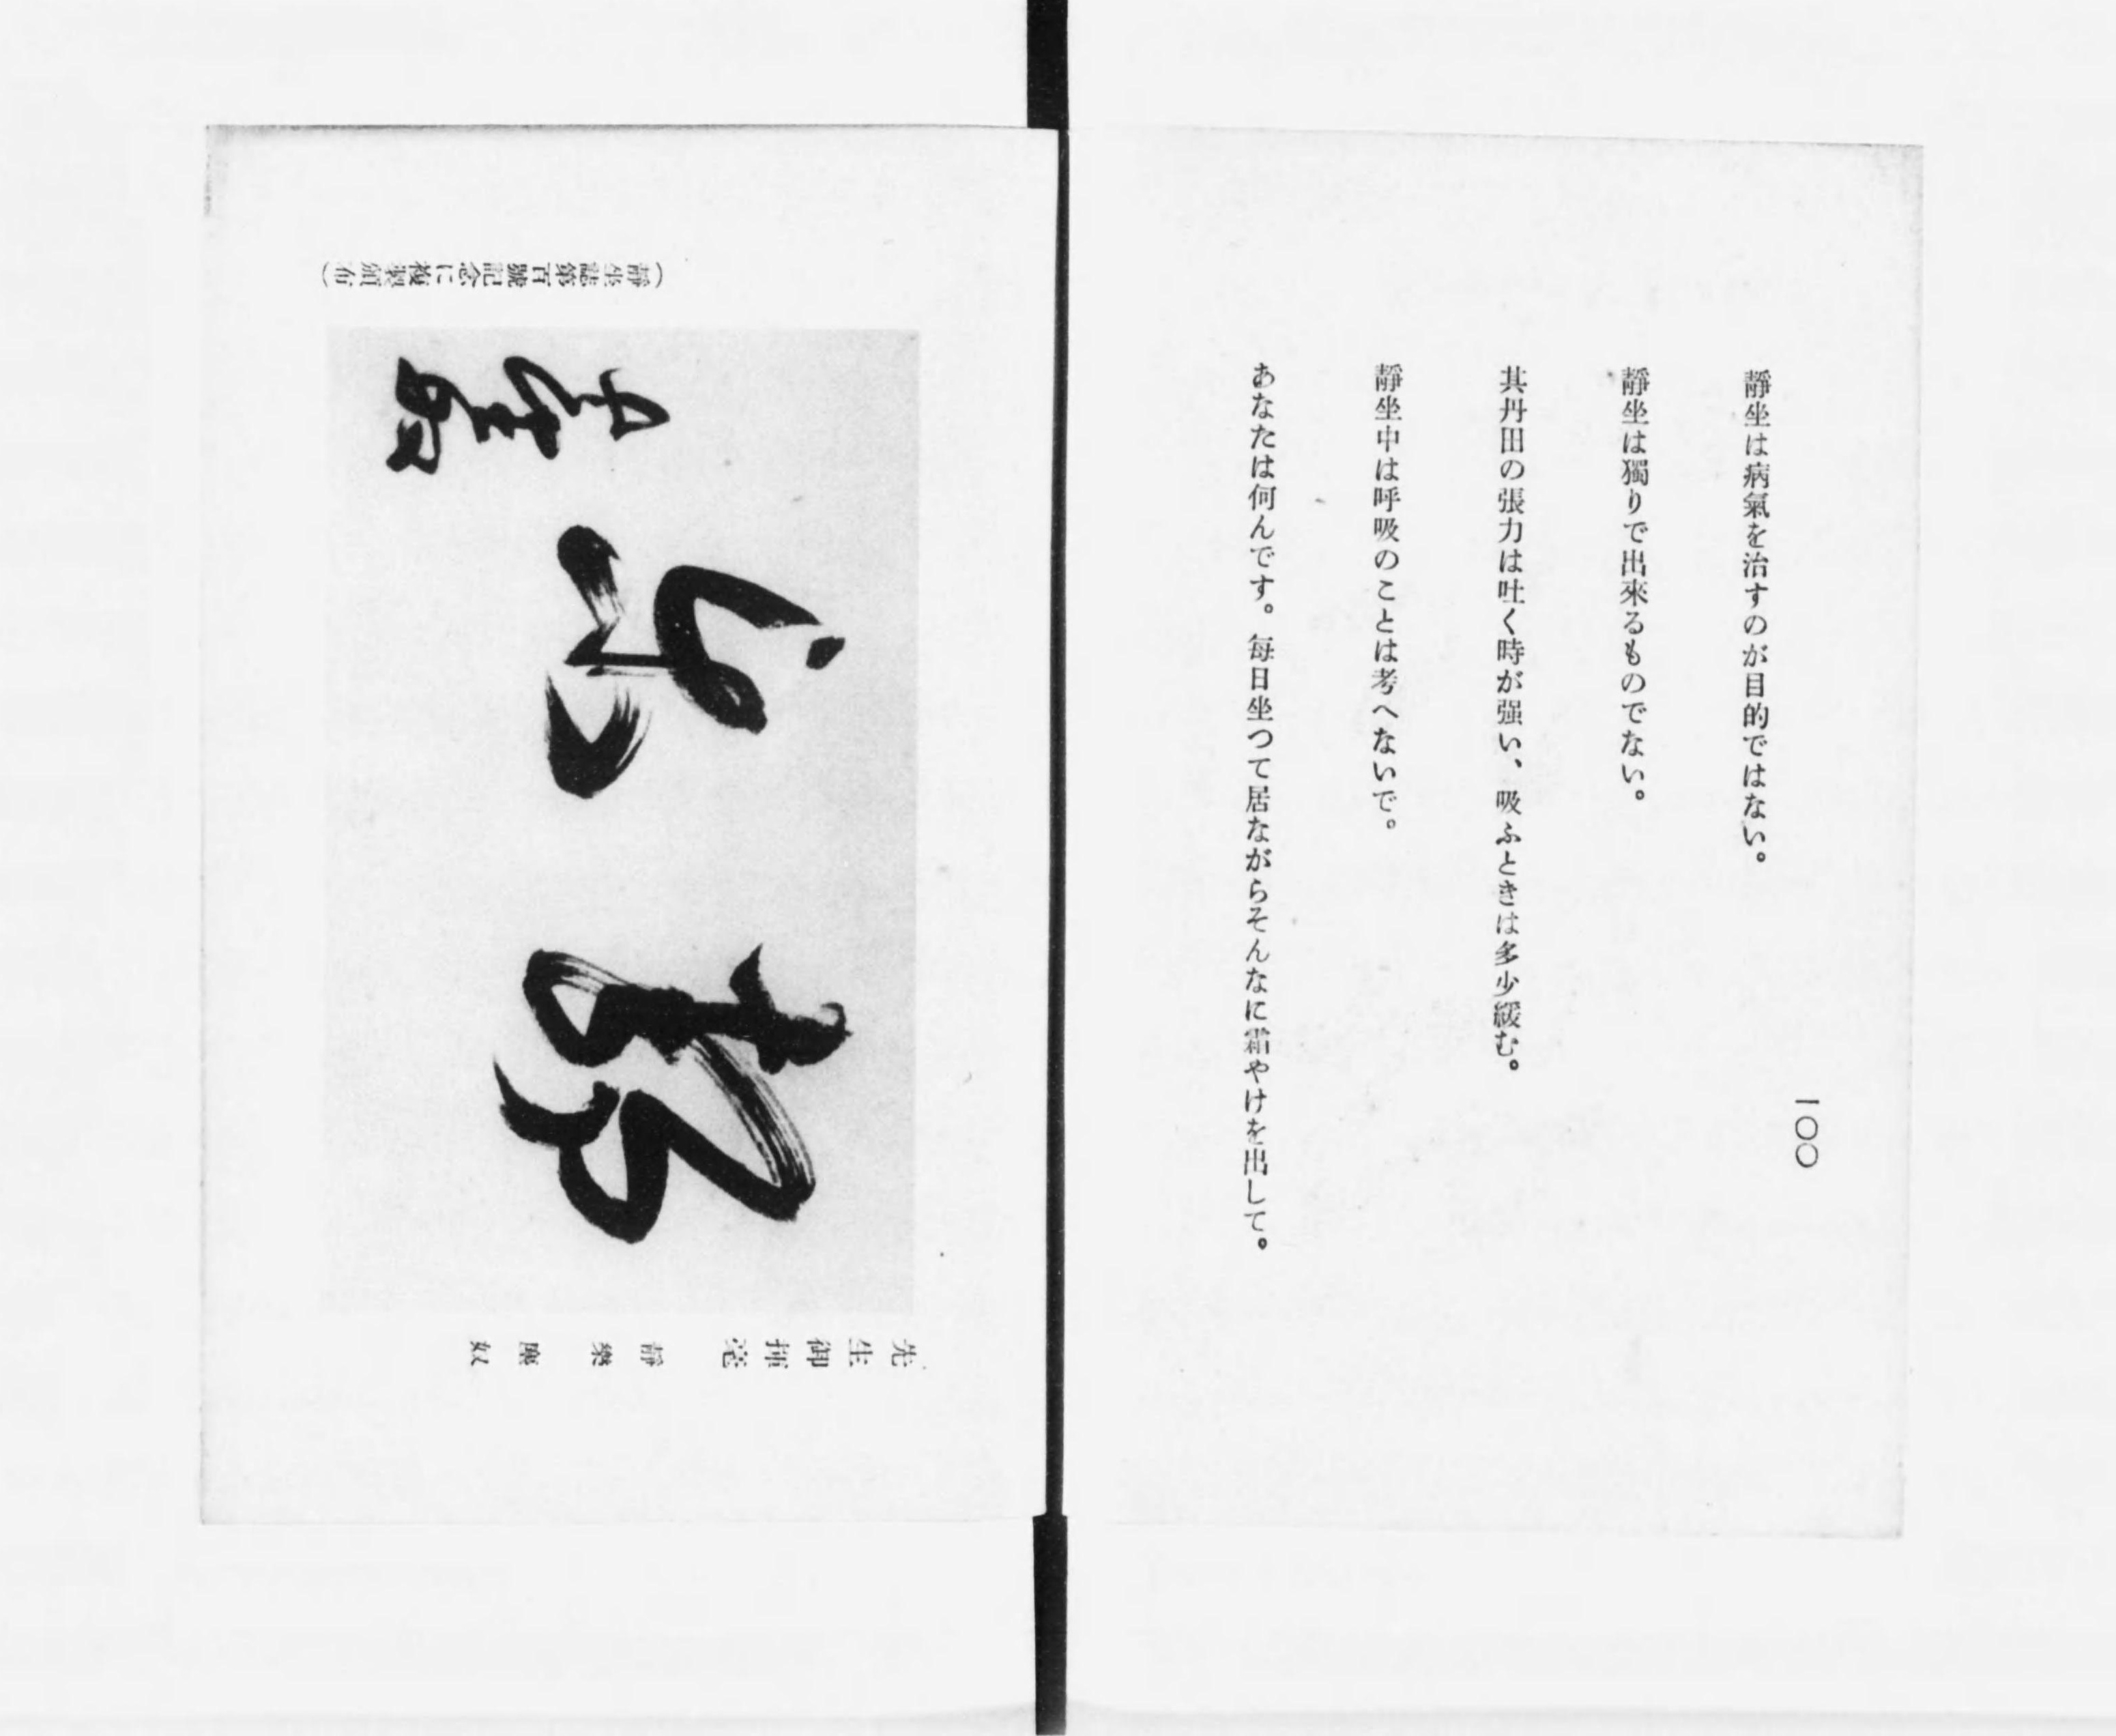 一〇〇
靜坐は病氣を治すのが目的ではない。
靜坐は獨りで出來るものでない。
其丹田の張力は吐く時が强い、吸ふときは多少緩む。
靜坐中は呼吸のことは考へないで。
あなたは何んです。每日坐つて居ながらそんなに霜やけを出して。
先生御揮毫 靜樂 奴
靜樂
(靜坐誌第百號記念に複製頒布)